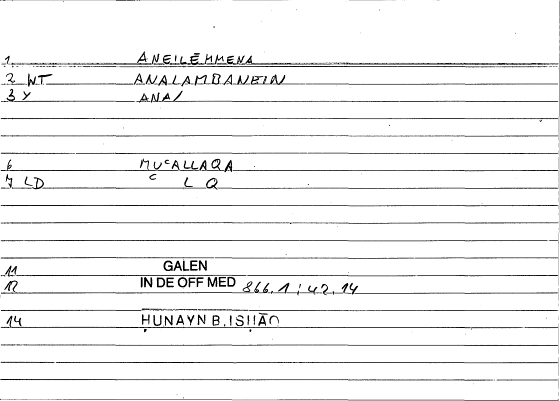 1 ANEILĒMMENA
2 WT ANALAMBANEIN
3 Y ANA/
6 MUᶜALLAQA
7 LD ᶜ L Q
11 GALEN
12 IN DE OFF MED 866,1 ; 42,14
14 ḤUNAYN B. ISḤĀQ